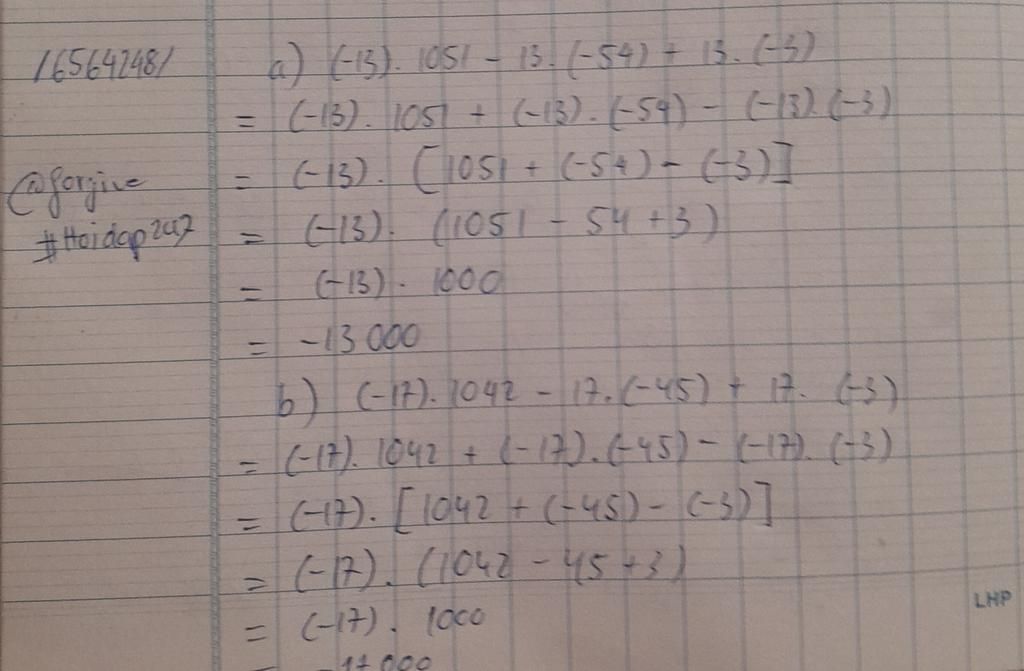 165642481
a) (-13). 1051 - 13. (-54) + 13. (-3)
= (-13). 1051 + (-13). (-54) - (-13). (-3)
@forgive
= (-13). [1051 + (-54) - (-3)]
#Hoidap247
= (-13). (1051 - 54 + 3)
= (-13). 1000
= -13 000
b) (-17). 1042 - 17. (-45) + 17. (-3)
= (-17). 1042 + (-17). (-45) - (-17). (-3)
= (-17). [1042 + (-45) - (-3)]
= (-17). (1042 - 45 + 3)
LHP
= (-17). 1000
= -17 000